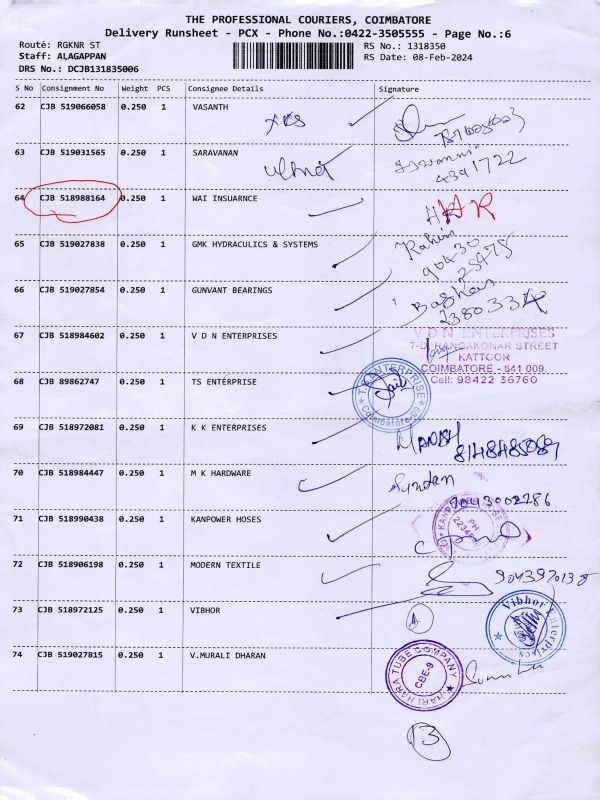 THE PROFESSIONAL COURIERS, COIMBATORE
Delivery Runsheet - PCX - Phone No.:0422-3505555 - Page No.:6
Route: RGKNR ST RS No.: 1318350
Staff: ALAGAPPAN RS Date: 08-Feb-2024
DRS No.: DCJB131835006
S No Consignment No Weight PCS Consignee Details Signature
62 CJB 519066058 0.250 1 VASANTH
63 CJB 519031565 0.250 1 SARAVANAN
4391722
64 CJB 518988164 0.250 1 WAI INSUARNCE
HR
65 CJB 519027838 0.250 1 GMK HYDRACULICS & SYSTEMS
Rahim
90430
25475
66 CJB 519027854 0.250 1 GUNVANT BEARINGS
Baskar
2380334
67 CJB 518984602 0.250 1 V D N ENTERPRISES
V D N ENTERPRISES
7-D, RANGAKONAR STREET
KATTOOR
COIMBATORE - 641 009.
Cell: 98422 36760
68 CJB 89862747 0.250 1 TS ENTERPRISE
T.S ENTERPRISE
Coimbatore-09
69 CJB 518972081 0.250 1 K K ENTERPRISES
MANISH
70 CJB 518984447 0.250 1 M K HARDWARE
Sundar
9043002286
71 CJB 518990438 0.250 1 KANPOWER HOSES
72 CJB 518906198 0.250 1 MODERN TEXTILE
73 CJB 518972125 0.250 1 VIBHOR
A
Vibhor Enterprises
74 CJB 519027815 0.250 1 V.MURALI DHARAN
HARI HARA TUBE COMPANY
CBE-9
13